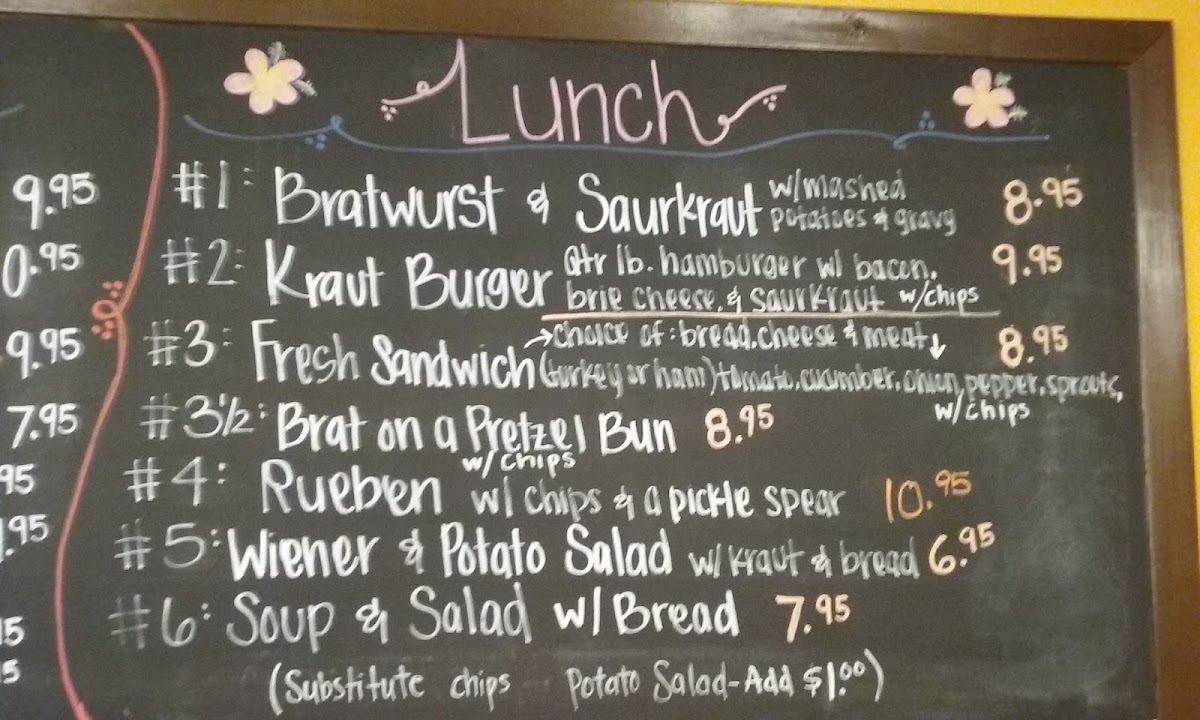 Lunch
9.95
#1: Bratwurst & Saurkraut w/mashed potatoes & gravy 8.95
0.95
#2: Kraut Burger Qtr lb. hamburger w/ bacon, brie cheese, & saurkraut w/chips 9.95
9.95
#3: Fresh Sandwich → choice of: bread, cheese & meat ↓ 8.95
(turkey or ham) tomato, cucumber, onion, pepper, sprouts, w/chips
7.95
#3½: Brat on a Pretzel Bun 8.95
w/chips
95
#4: Rueben w/ chips & a pickle spear 10.95
.95
#5: Wiener & Potato Salad w/kraut & bread 6.95
#6: Soup & Salad w/Bread 7.95
95
5
(Substitute chips Potato Salad-Add $1.00)